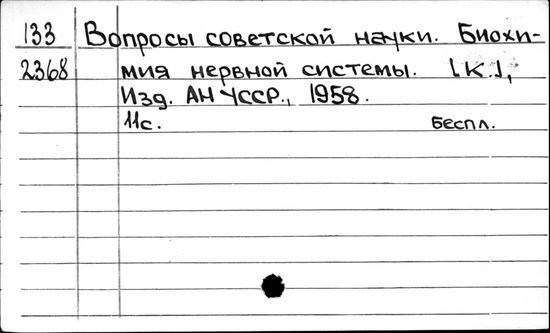 133 Вопросы советской науки. Биохи-
2368 мия нервной системы. [К.],
Изд. АН УССР., 1958.
11с. Беспл.